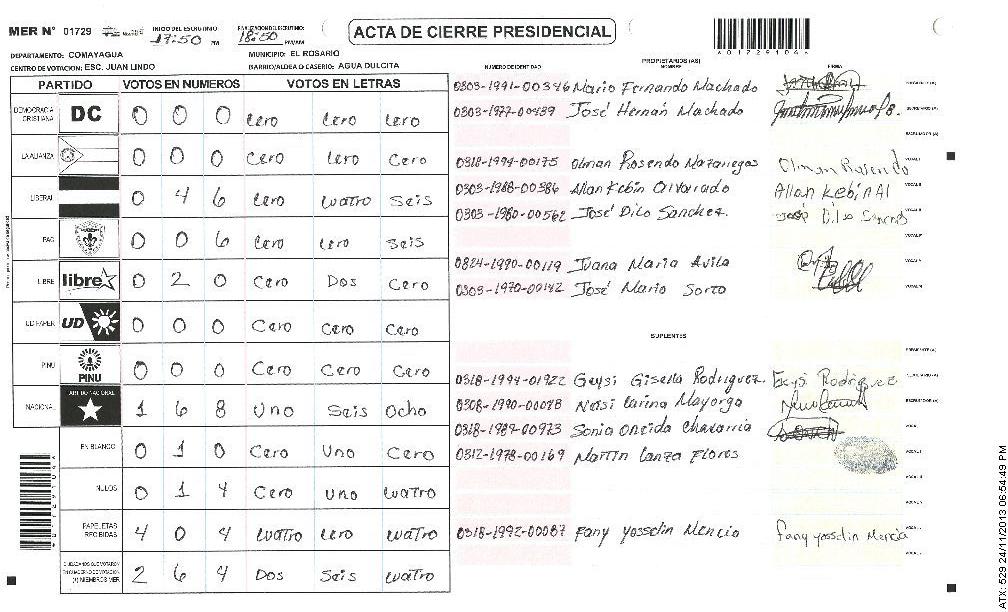 MER N° 01729 INICIO DEL ESCRUTINIO 17:50 PM FINALIZACION DEL ESCRUTINIO: 18:50 PM/AM ACTA DE CIERRE PRESIDENCIAL
DEPARTAMENTO: COMAYAGUA MUNICIPIO: EL ROSARIO
CENTRO DE VOTACION: ESC. JUAN LINDO BARRIO/ALDEA O CASERIO: AGUA DULCITA
PARTIDO VOTOS EN NUMEROS VOTOS EN LETRAS
DEMOCRACIA CRISTIANA DC 0 0 0 Cero Cero Cero
LA ALIANZA 0 0 0 Cero Cero Cero
LIBERAL 0 4 6 Cero Cuatro Seis
PAC 0 0 6 Cero Cero Seis
LIBRE libre 0 2 0 Cero Dos Cero
UD FAPER UD 0 0 0 Cero Cero Cero
PINU PINU 0 0 0 Cero Cero Cero
NACIONAL PARTIDO NACIONAL 1 6 8 Uno Seis Ocho
EN BLANCO 0 1 0 Cero Uno Cero
NULOS 0 1 4 Cero Uno Cuatro
PAPELETAS RECIBIDAS 4 0 4 Cuatro Cero Cuatro
CIUDADANOS QUE VOTARON EN CUADERNO DE VOTACION (+) MIEMBROS MER 2 6 4 Dos Seis Cuatro
A017291064
NUMERO DE IDENTIDAD PROPIETARIOS (AS) NOMBRE FIRMA
0303-1991-00346 Mario Fernando Machado
0303-1977-00439 José Hernán Machado
0318-1994-00175 Olman Rosendo Mazariegos Olman Rosendo
0303-1988-00386 Allan Kebin Alvarado Allan Kebin Al
0303-1980-00562 José Dilo Sanchez.
0824-1990-00119 Juana Maria Avila
0303-1970-00142 José Mario Sorto
SUPLENTES
0318-1994-01922 Geysi Gisella Rodriguez. Geysi Rodriguez
0308-1990-00078 Neisi Carina Mayorga
0318-1989-00973 Sonia Oneida Chavarria
0312-1978-00169 Martin Lanza Flores
0318-1992-00087 Fany Yosselin Mencio Fany yosselin Mencia
ATX: 529 24/11/2013 06:54:49 PM